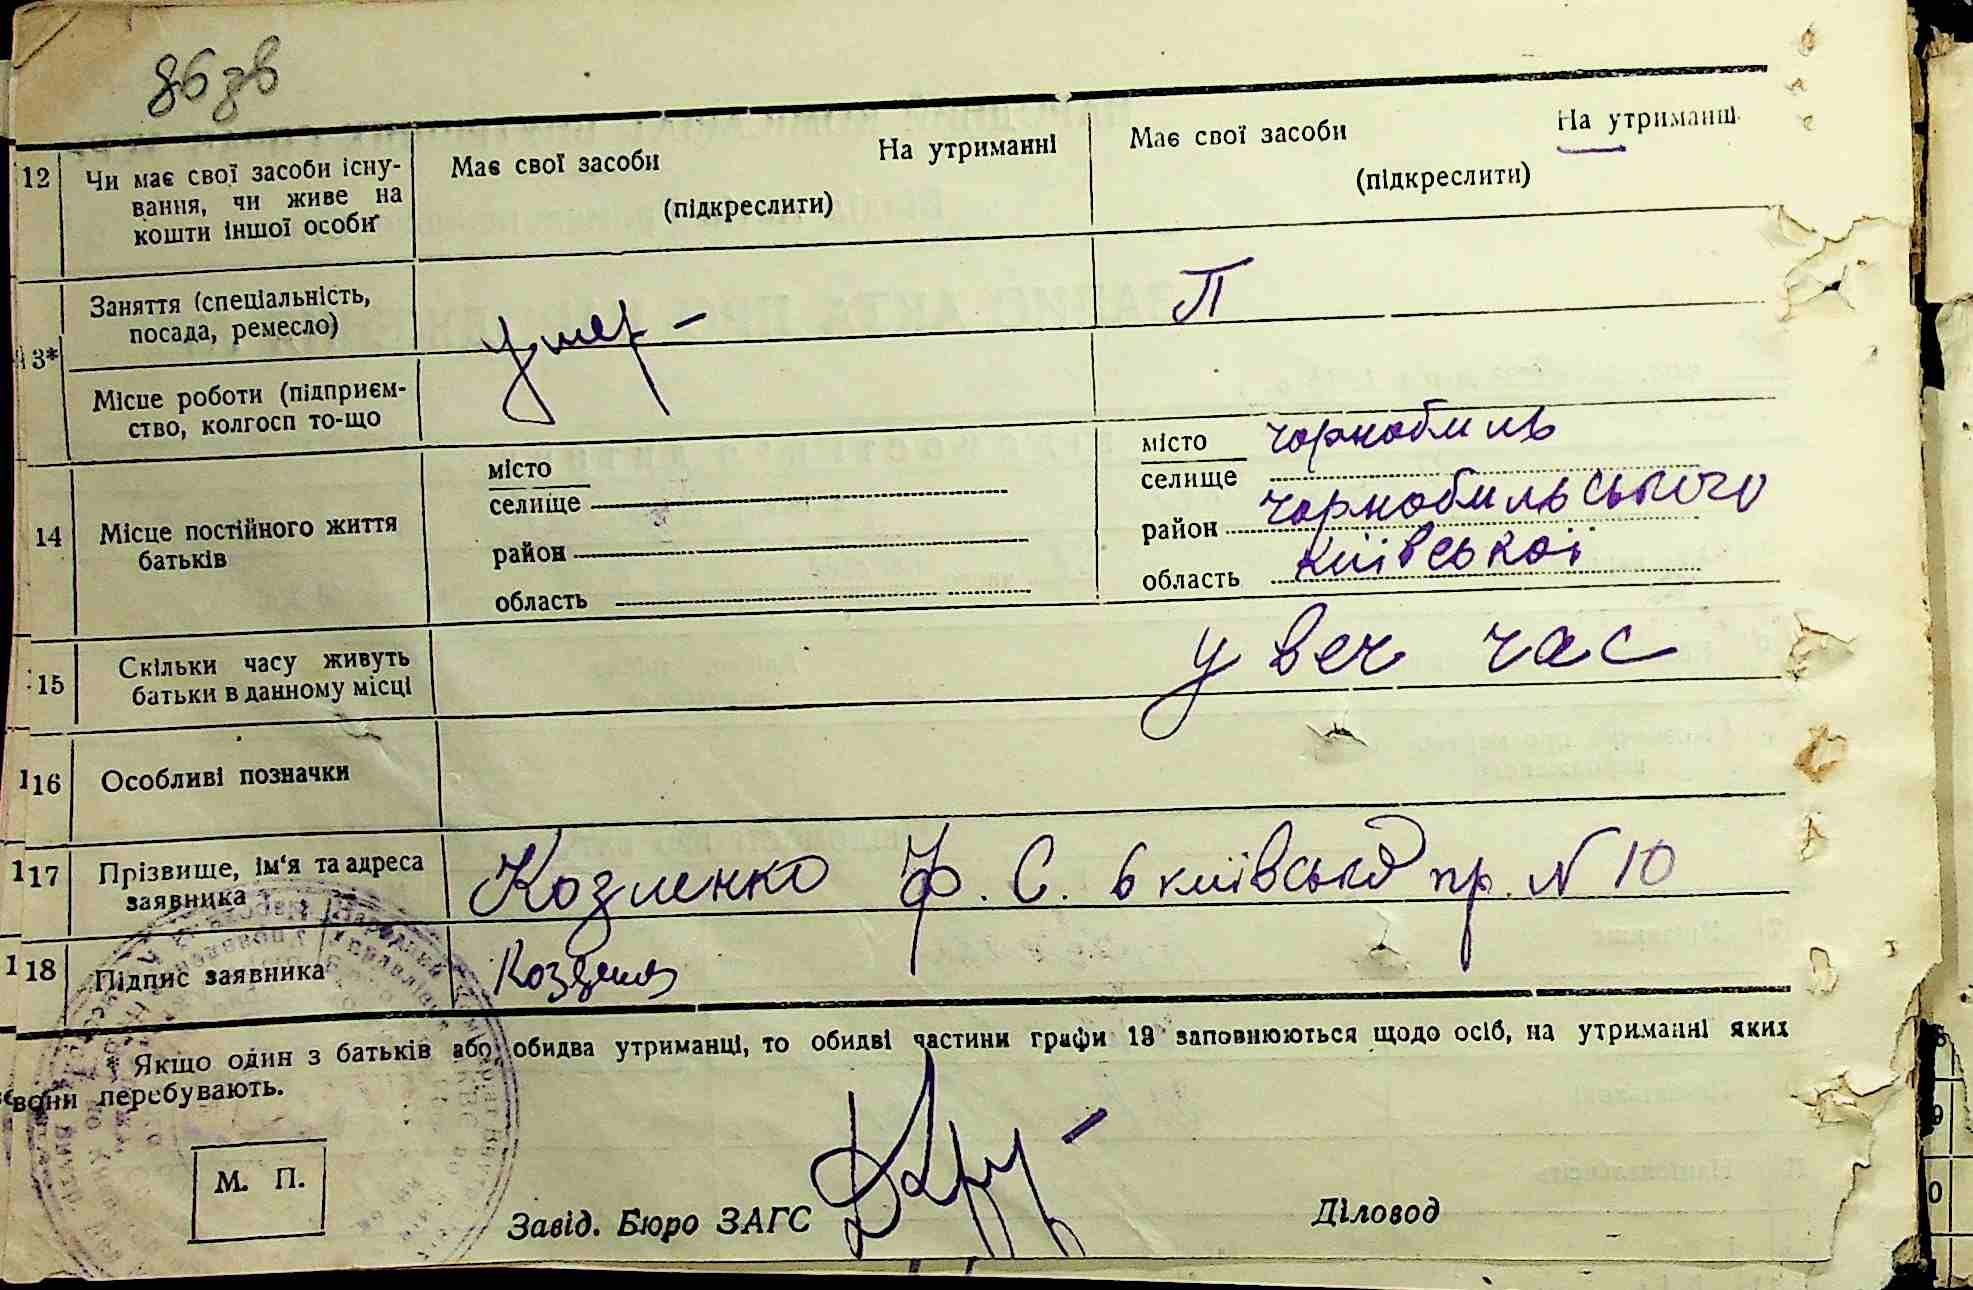 12
Чи має свої засоби існу-
вання, чи живе на
кошти іншої особи
Має свої засоби На утриманні
(підкреслити)
Має свої засоби На утриманні
(підкреслити)
13*
Заняття (спеціальність,
посада, ремесло)
умер –
П
Місце роботи (підприєм-
ство, колгосп то-що
14
Місце постійного життя
батьків
місто
селище
район
область
місто чорнобиль
селище
район чорнобильського
область київської
15
Скільки часу живуть
батьки в данному місці
увеч час
116
Особливі позначки
117
Прізвище, ім'я та адреса
заявника
Козленко Ф. С. 6 київський пр. N 10
118
Підпис заявника
* Якщо один з батьків або обидва утриманці, то обидві частини графи 13 заповнюються щодо осіб, на утриманні яких
вони перебувають.
М. П.
Завід. Бюро ЗАГС
Діловод